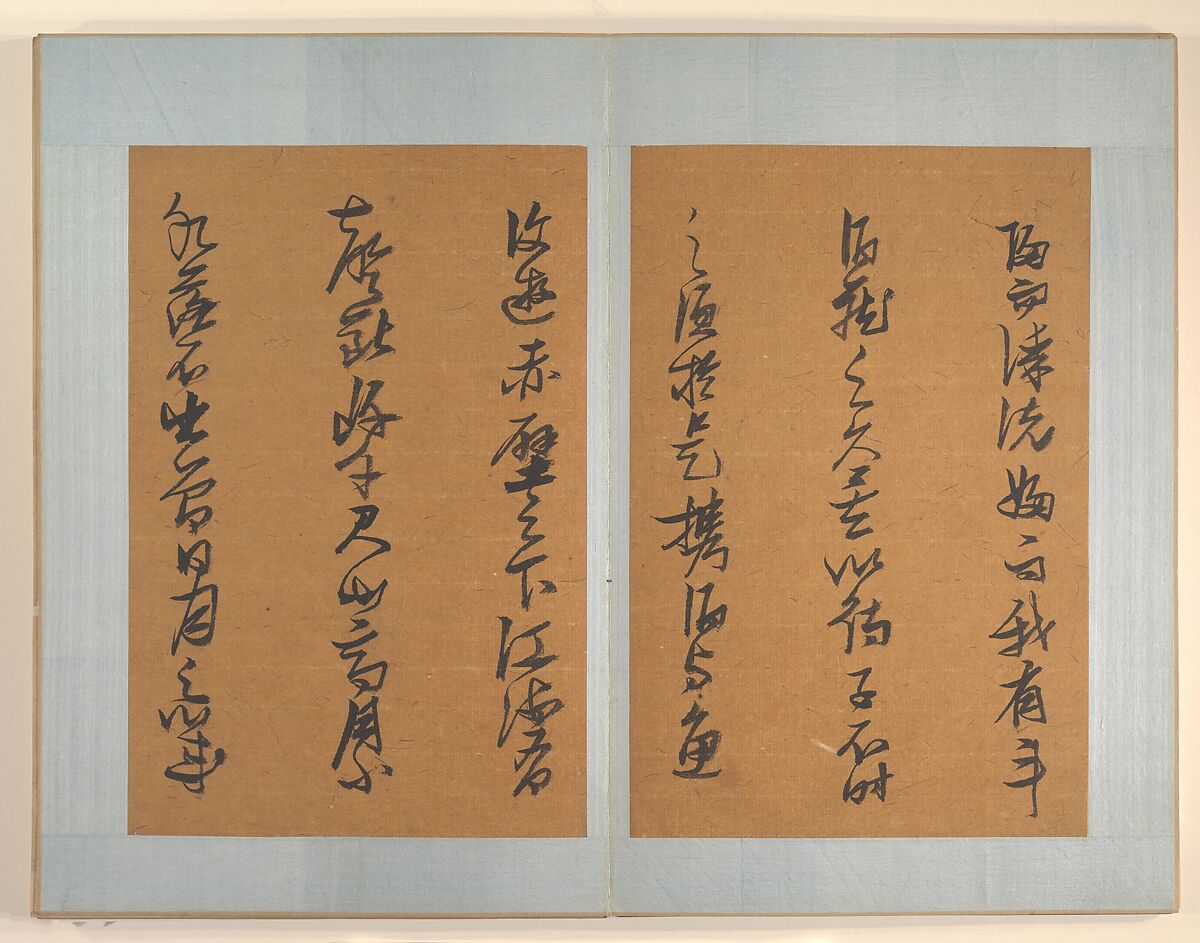 歸而謀諸婦曰我有斗
酒藏之久矣以待子不時
之須於是攜酒與魚
復遊赤壁之下江流有
聲斷岸千尺山高月小
水落石出曾日月之幾